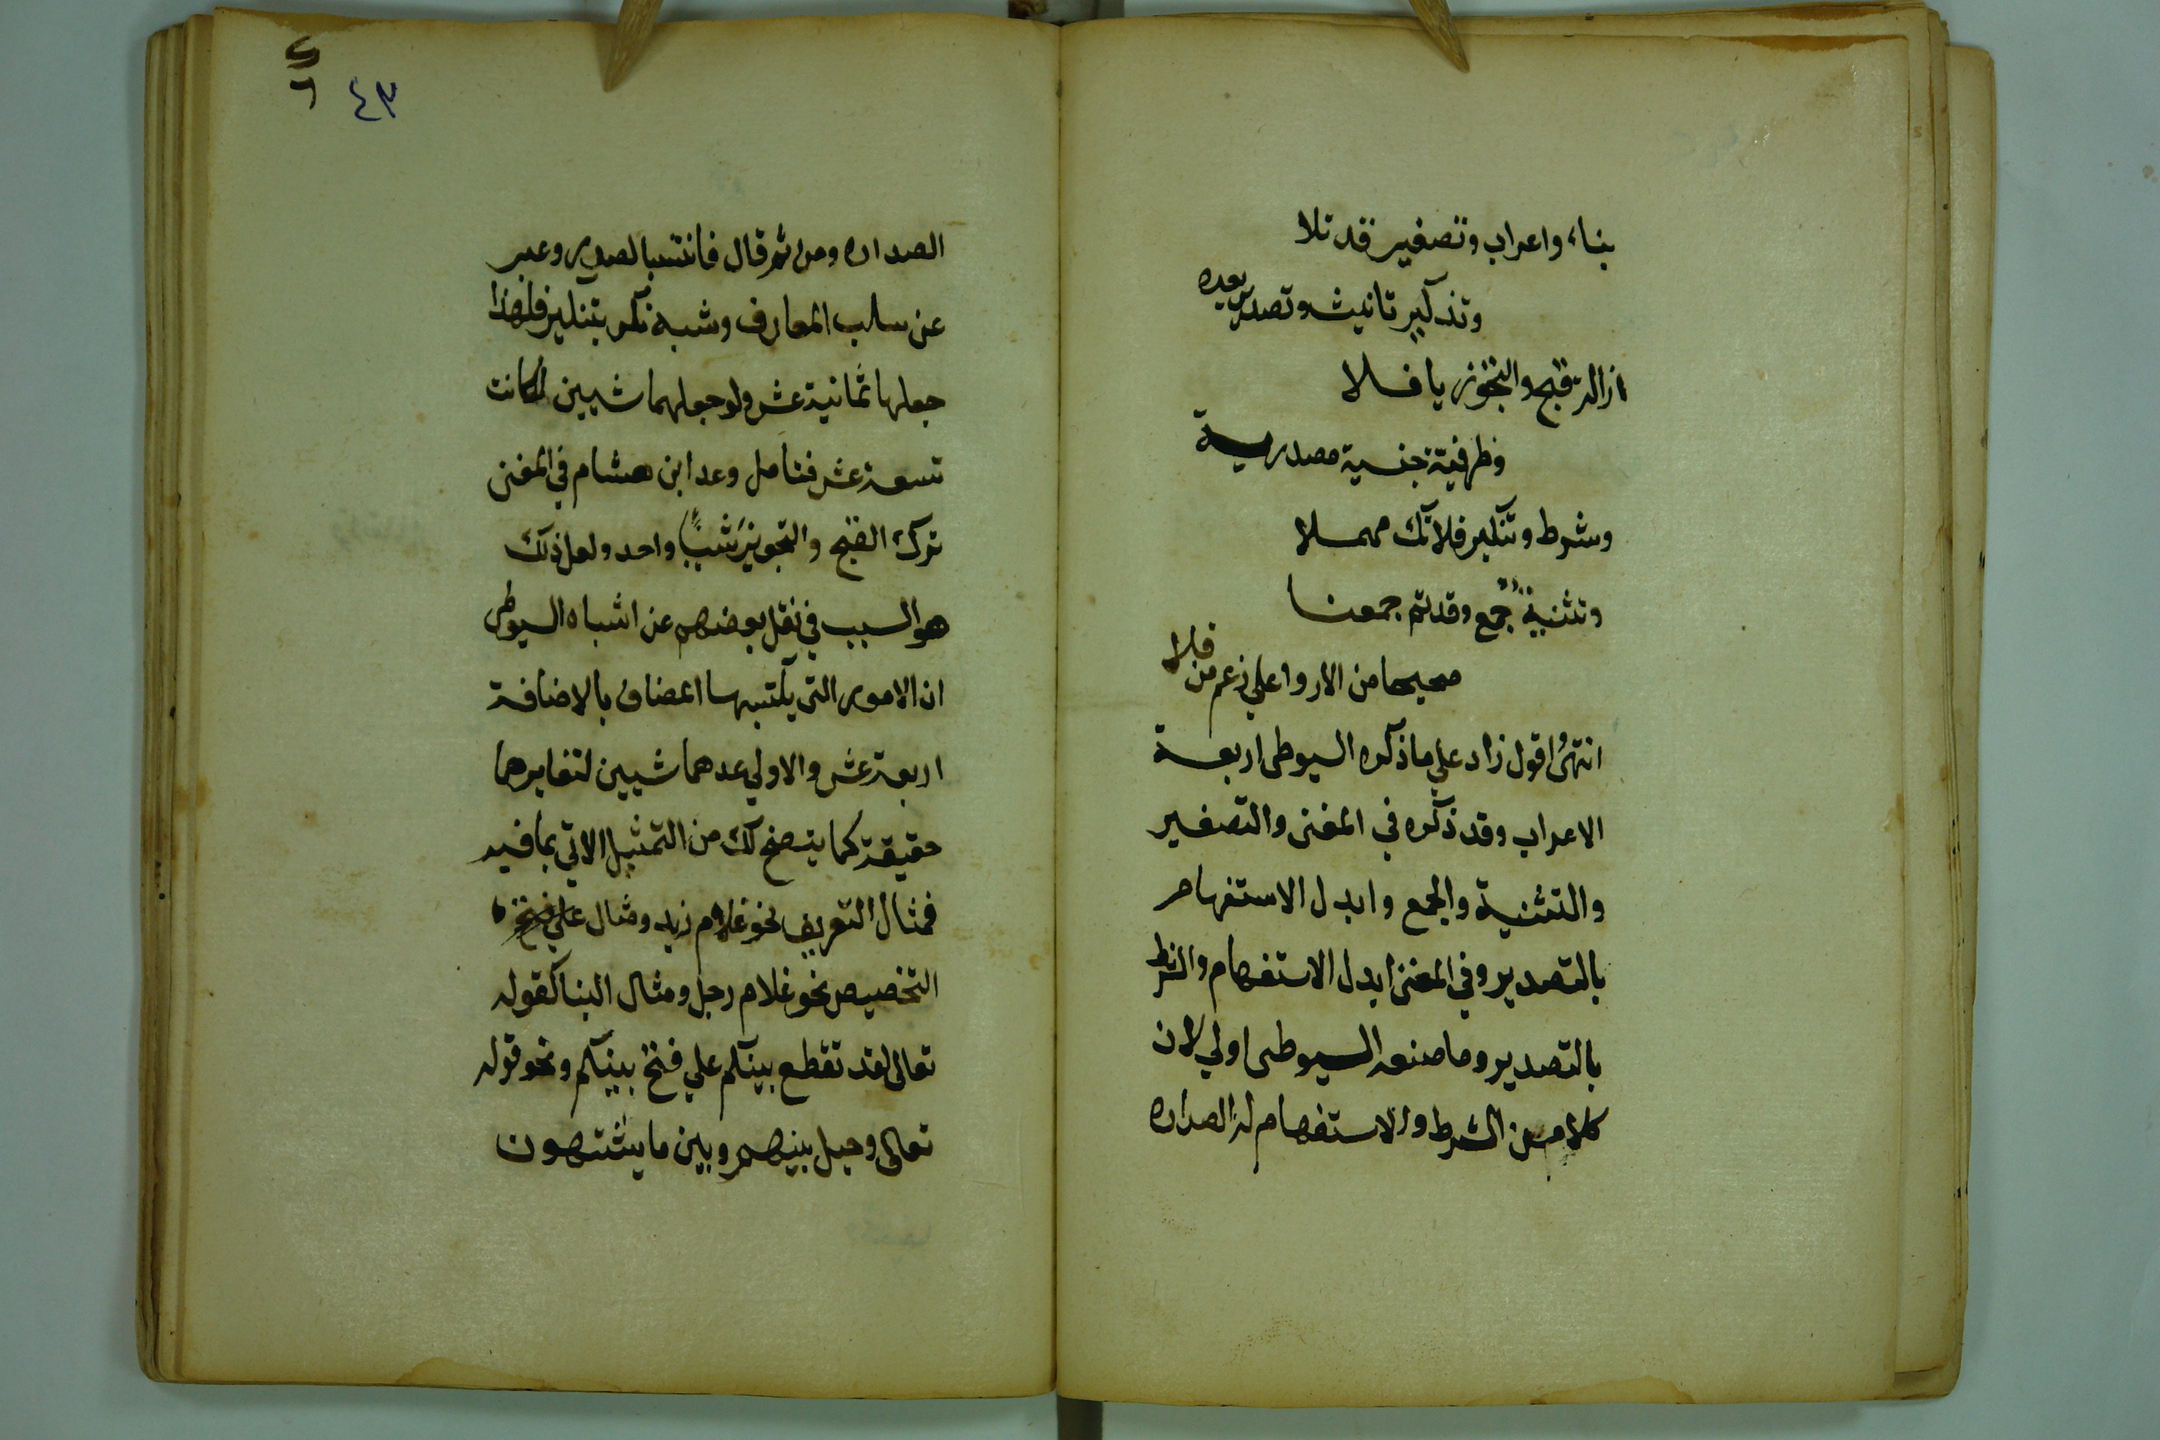 بناء واعراب وتصغير قد تلا
وتذكير تانيث وتصدير بعده
ازالة قبح والتجوز يا فلا
وظرفية جنسية مصدرية
وشرط وتنكير فلا تك مهملا
وتثنية جمع وقد تم جمعنا
صحيحا من الاروا علي زعم من فلا
انتهى اقول زاد علي ما ذكره السيوطى اربعة
الاعراب وقد ذكره في المغنى والتصغير
والتثنية والجمع وابدل الاستفهام
بالتصدير وفي المغنى ابدل الاستفهام والشرط
بالتصدير وما صنعه السيوطى اولي لان
كلا من الشرط والاستفهام له الصداره
٤٣
الصداره ومن ثم قال فانتسبا لصدر وعبر
عن سلب المعارف وشبه نكر بتنكير فلهذا
جعلها ثمانية عشر ولو جعلهما شيين لكانت
تسعة عشر فتامل وعد ابن هشام في المغنى
ترك القبح والتجويز شيا واحد ولعل ذلك
هو السبب في نقل بعضهم عن اشباه السيوطى
ان الامور التى يكتسبها المضاف بالاضافة
اربعة عشر والاولي عدهما شيين لتغايرهما
حقيقة كما يتضح لك من التمثيل الاتي بما فيه
فمثال التعريف نحو غلام زيد ومثال
التخصيص نحو غلام رجل ومثال البنا كقوله
تعالى لقد تقطع بينكم علي فتح بينكم ونحو قوله
تعالى وحيل بينهم وبين ما يشتهون